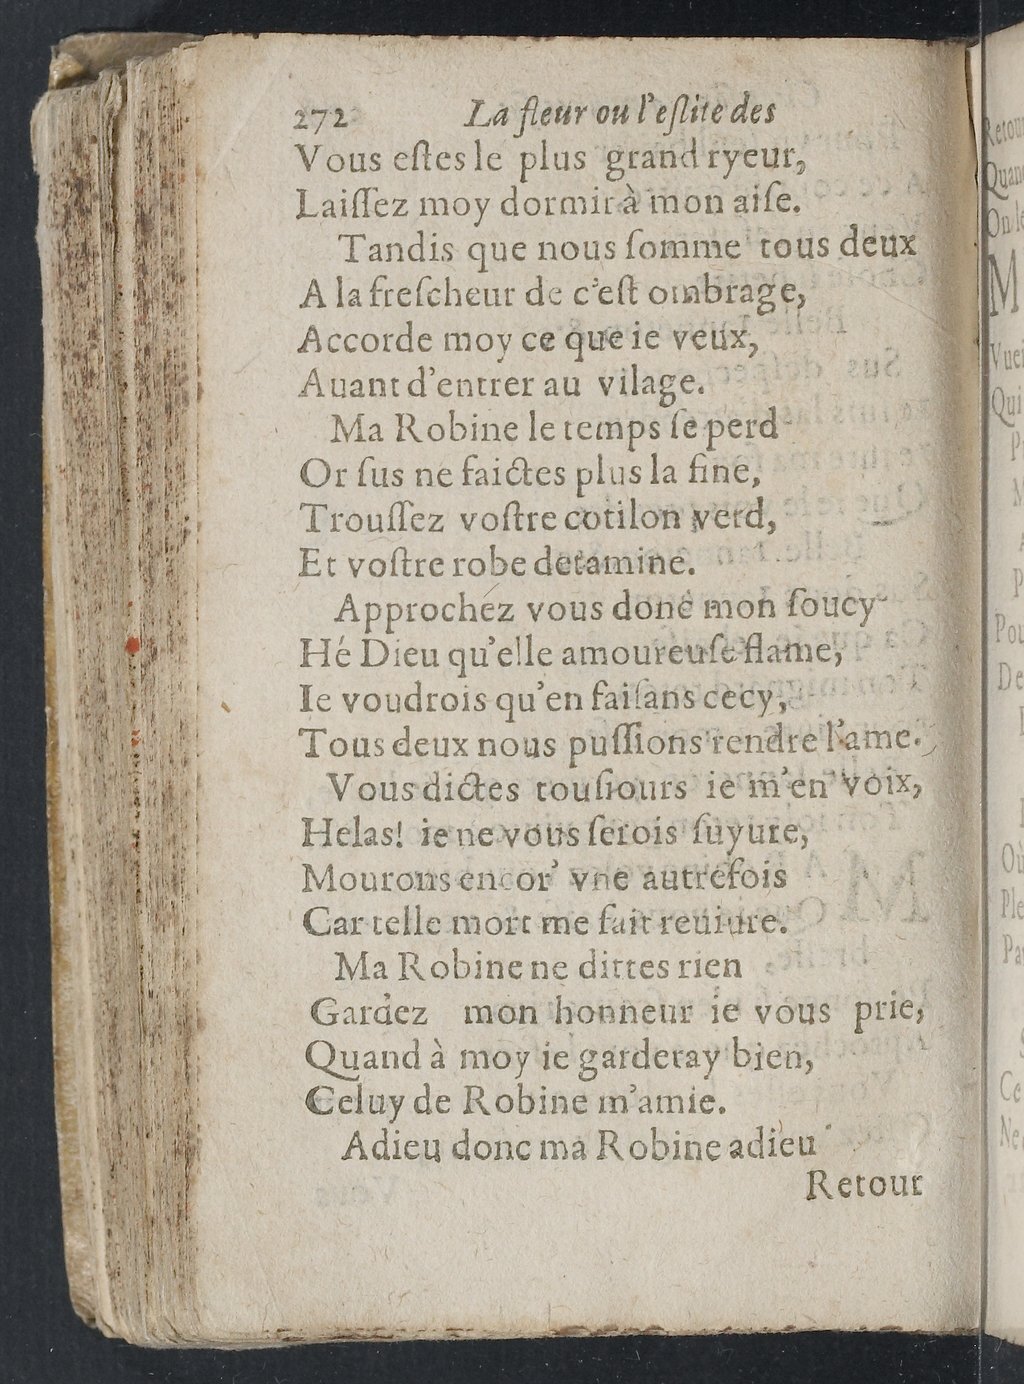 272 La fleur ou l'eſlite des
Vous eſtes le plus grand ryeur,
Laiſſez moy dormir à mon aiſe.
Tandis que nous ſomme tous deux
A la freſcheur de c'eſt ombrage,
Accorde moy ce que ie veux,
Auant d'entrer au vilage.
Ma Robine le temps ſe perd
Or ſus ne faictes plus la fine,
Trouſſez voſtre cotilon verd,
Et voſtre robe detamine.
Approchez vous donc mon ſoucy
Hé Dieu qu'elle amoureuſe flame,
Ie voudrois qu'en faiſans cecy,
Tous deux nous puſſions rendre l'ame.
Vous dictes touſiours ie m'en voix,
Helas! ie ne vous ſerois ſuyure,
Mourons encor' vne autrefois
Car telle mort me fait reuiure.
Ma Robine ne dittes rien
Gardez mon honneur ie vous prie,
Quand à moy ie garderay bien,
Celuy de Robine m'amie.
Adieu donc ma Robine adieu
Retour